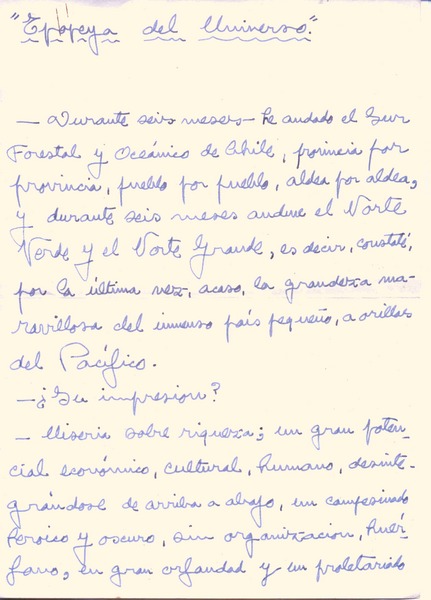 "Epopeya del Universo"
— Durante seis meses — he andado el Sur
Forestal y Oceánico de Chile, provincia por
provincia, pueblo por pueblo, aldea por aldea,
y durante seis meses anduve el Norte
Verde y el Norte Grande, es decir, constaté,
por la última vez, acaso, la grandeza ma-
ravillosa del inmenso país pequeño, a orillas
del Pacífico.
— ¿Su impresión?
— Miseria sobre riqueza; un gran poten-
cial económico, cultural, humano, desinte-
grándose de arriba a abajo, un campesinado
heroico y oscuro, sin organización, huér-
fano, en gran orfandad y un proletariado